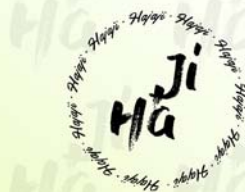 Hajaji · Hajaji · Hajaji · Hajaji · Hajaji · Hajaji · Hajaji · Hajaji · Hajaji ·
Ji
Ha